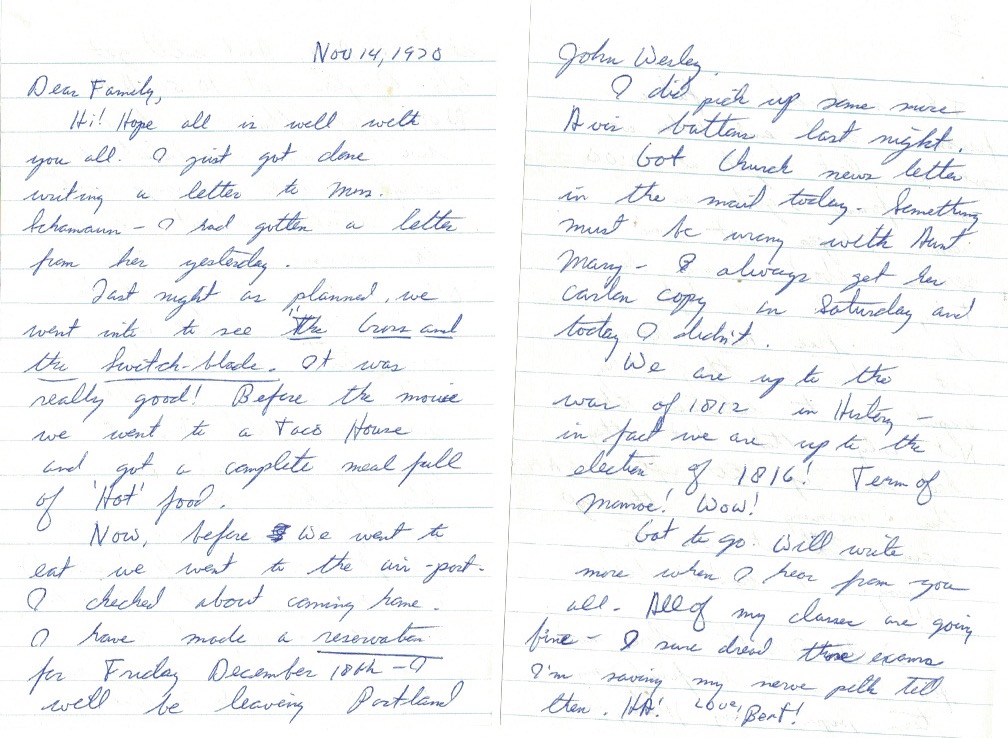 Nov 14, 1970
Dear Family,
Hi! Hope all is well with
you all. I just got done
writing a letter to Mrs.
Schamaun - I had gotten a letter
from her yesterday.
Last night as planned, we
went into to see "The Cross and
the Switch-blade. It was
really good! Before the movie
we went to a Taco House
and got a complete meal full
of 'Hot' food.
Now, before we went to
eat we went to the air-port.
I checked about coming home.
I have made a reservation
for Friday December 18th - I
will be leaving Portland
John Wesley,
I did pick up some more
Avis buttons last night.
Got Church news letter
in the mail today. Something
must be wrong with Aunt
Mary - I always get her
carbon copy on Saturday and
today I didn't.
We are up to the
war of 1812 in History -
in fact we are up to the
election of 1816! Term of
Monroe! Wow!
Got to go. Will write
more when I hear from you
all. All of my classes are going
fine - I sure dread those exams
I'm saving my nerve pills till
then. HA! Love, Bert!